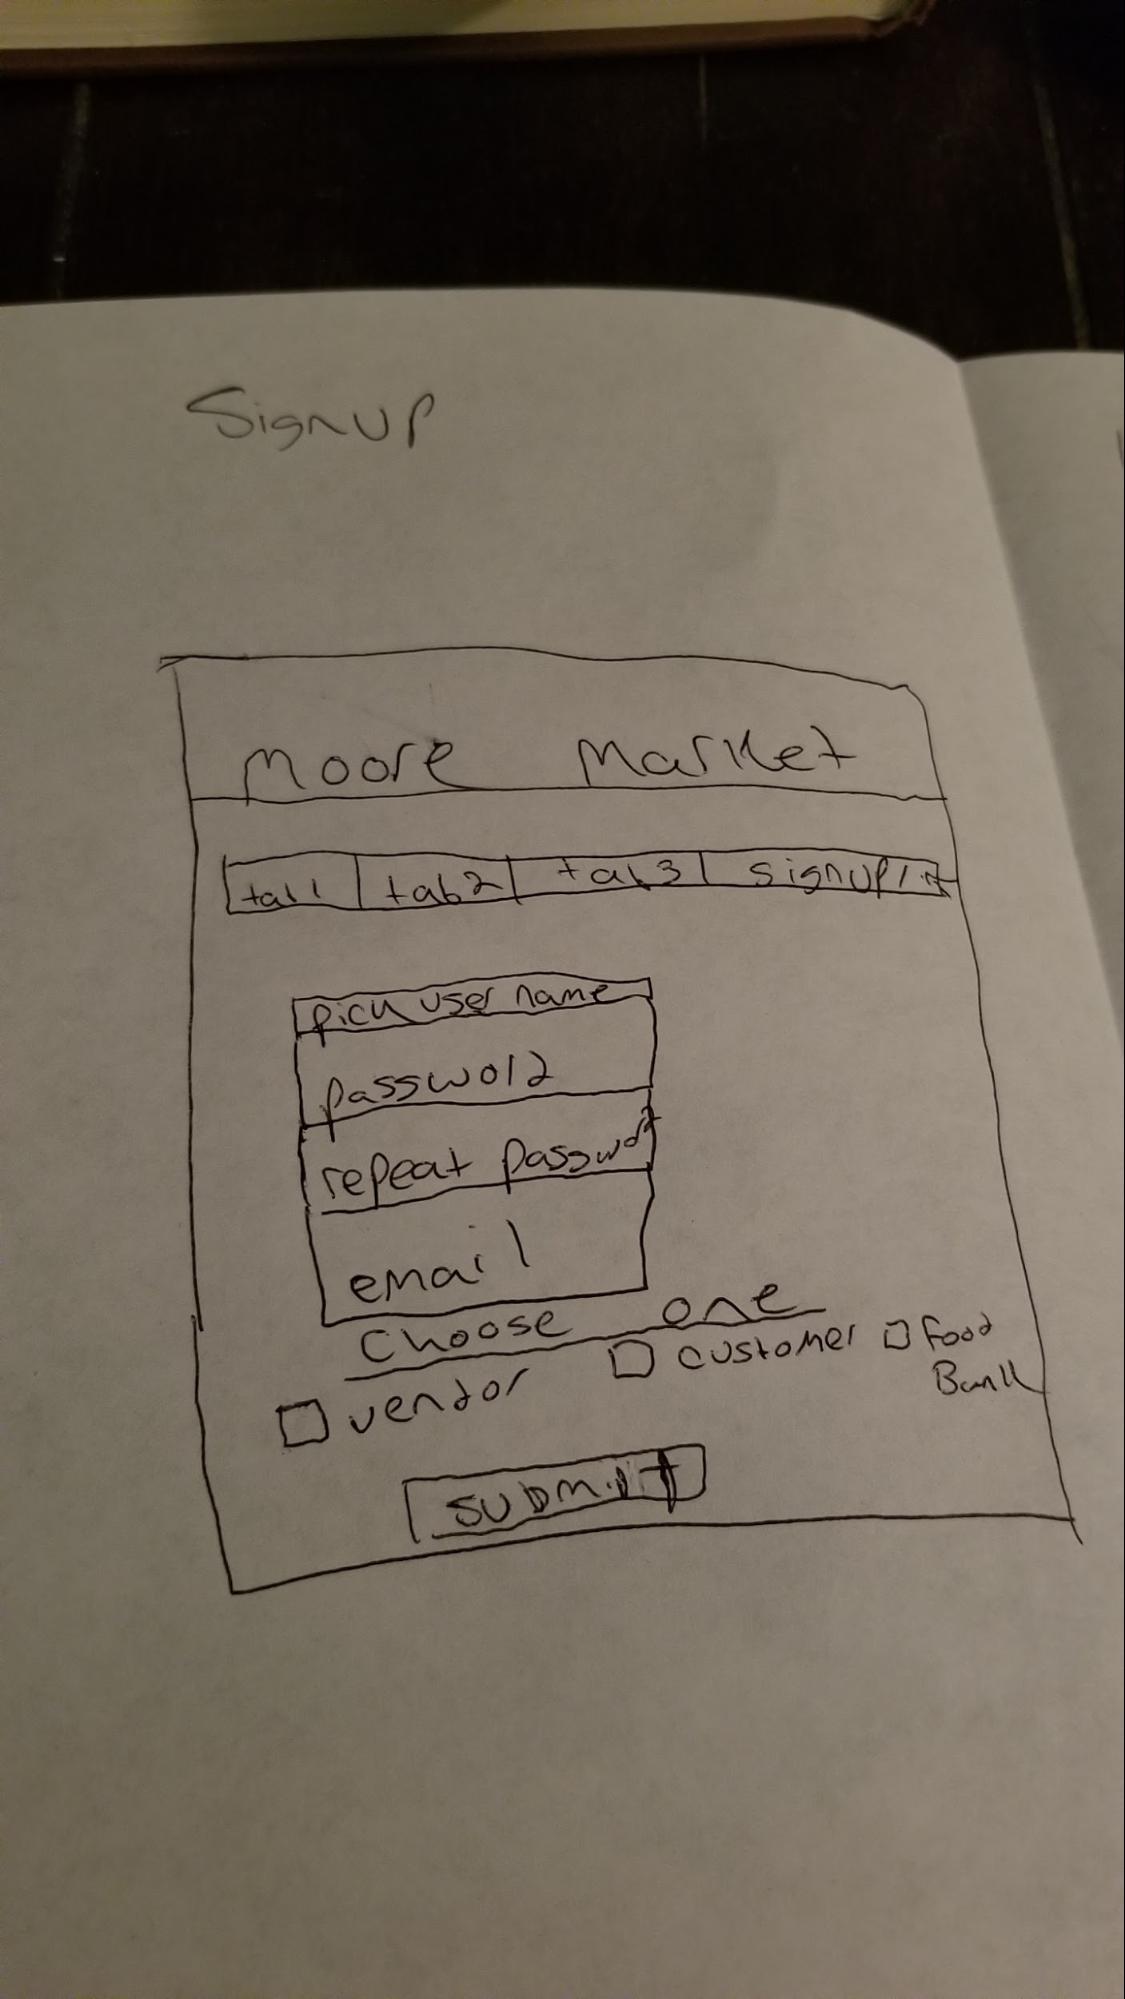 Signup
Moore Market
tab1 tab2 tab3 signup/
pick user name
password
repeat password
email
Choose one
vendor customer Food
Bank
submit